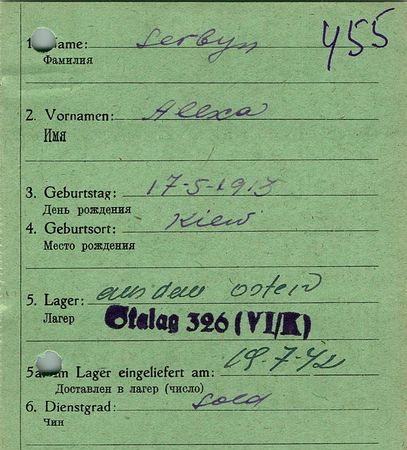 455
1. Name: Serbyn
Фамилия
2. Vornamen: Alexa
Имя
3. Geburtstag: 17-5-1913
День рождения
4. Geburtsort: Kiew
Место рождения
5. Lager: aus dem Osten
Лагер
Stalag 326 (VI/K)
5a. Im Lager eingeliefert am: 19-7-42
Доставлен в лагер (число)
6. Dienstgrad: Sold
Чин